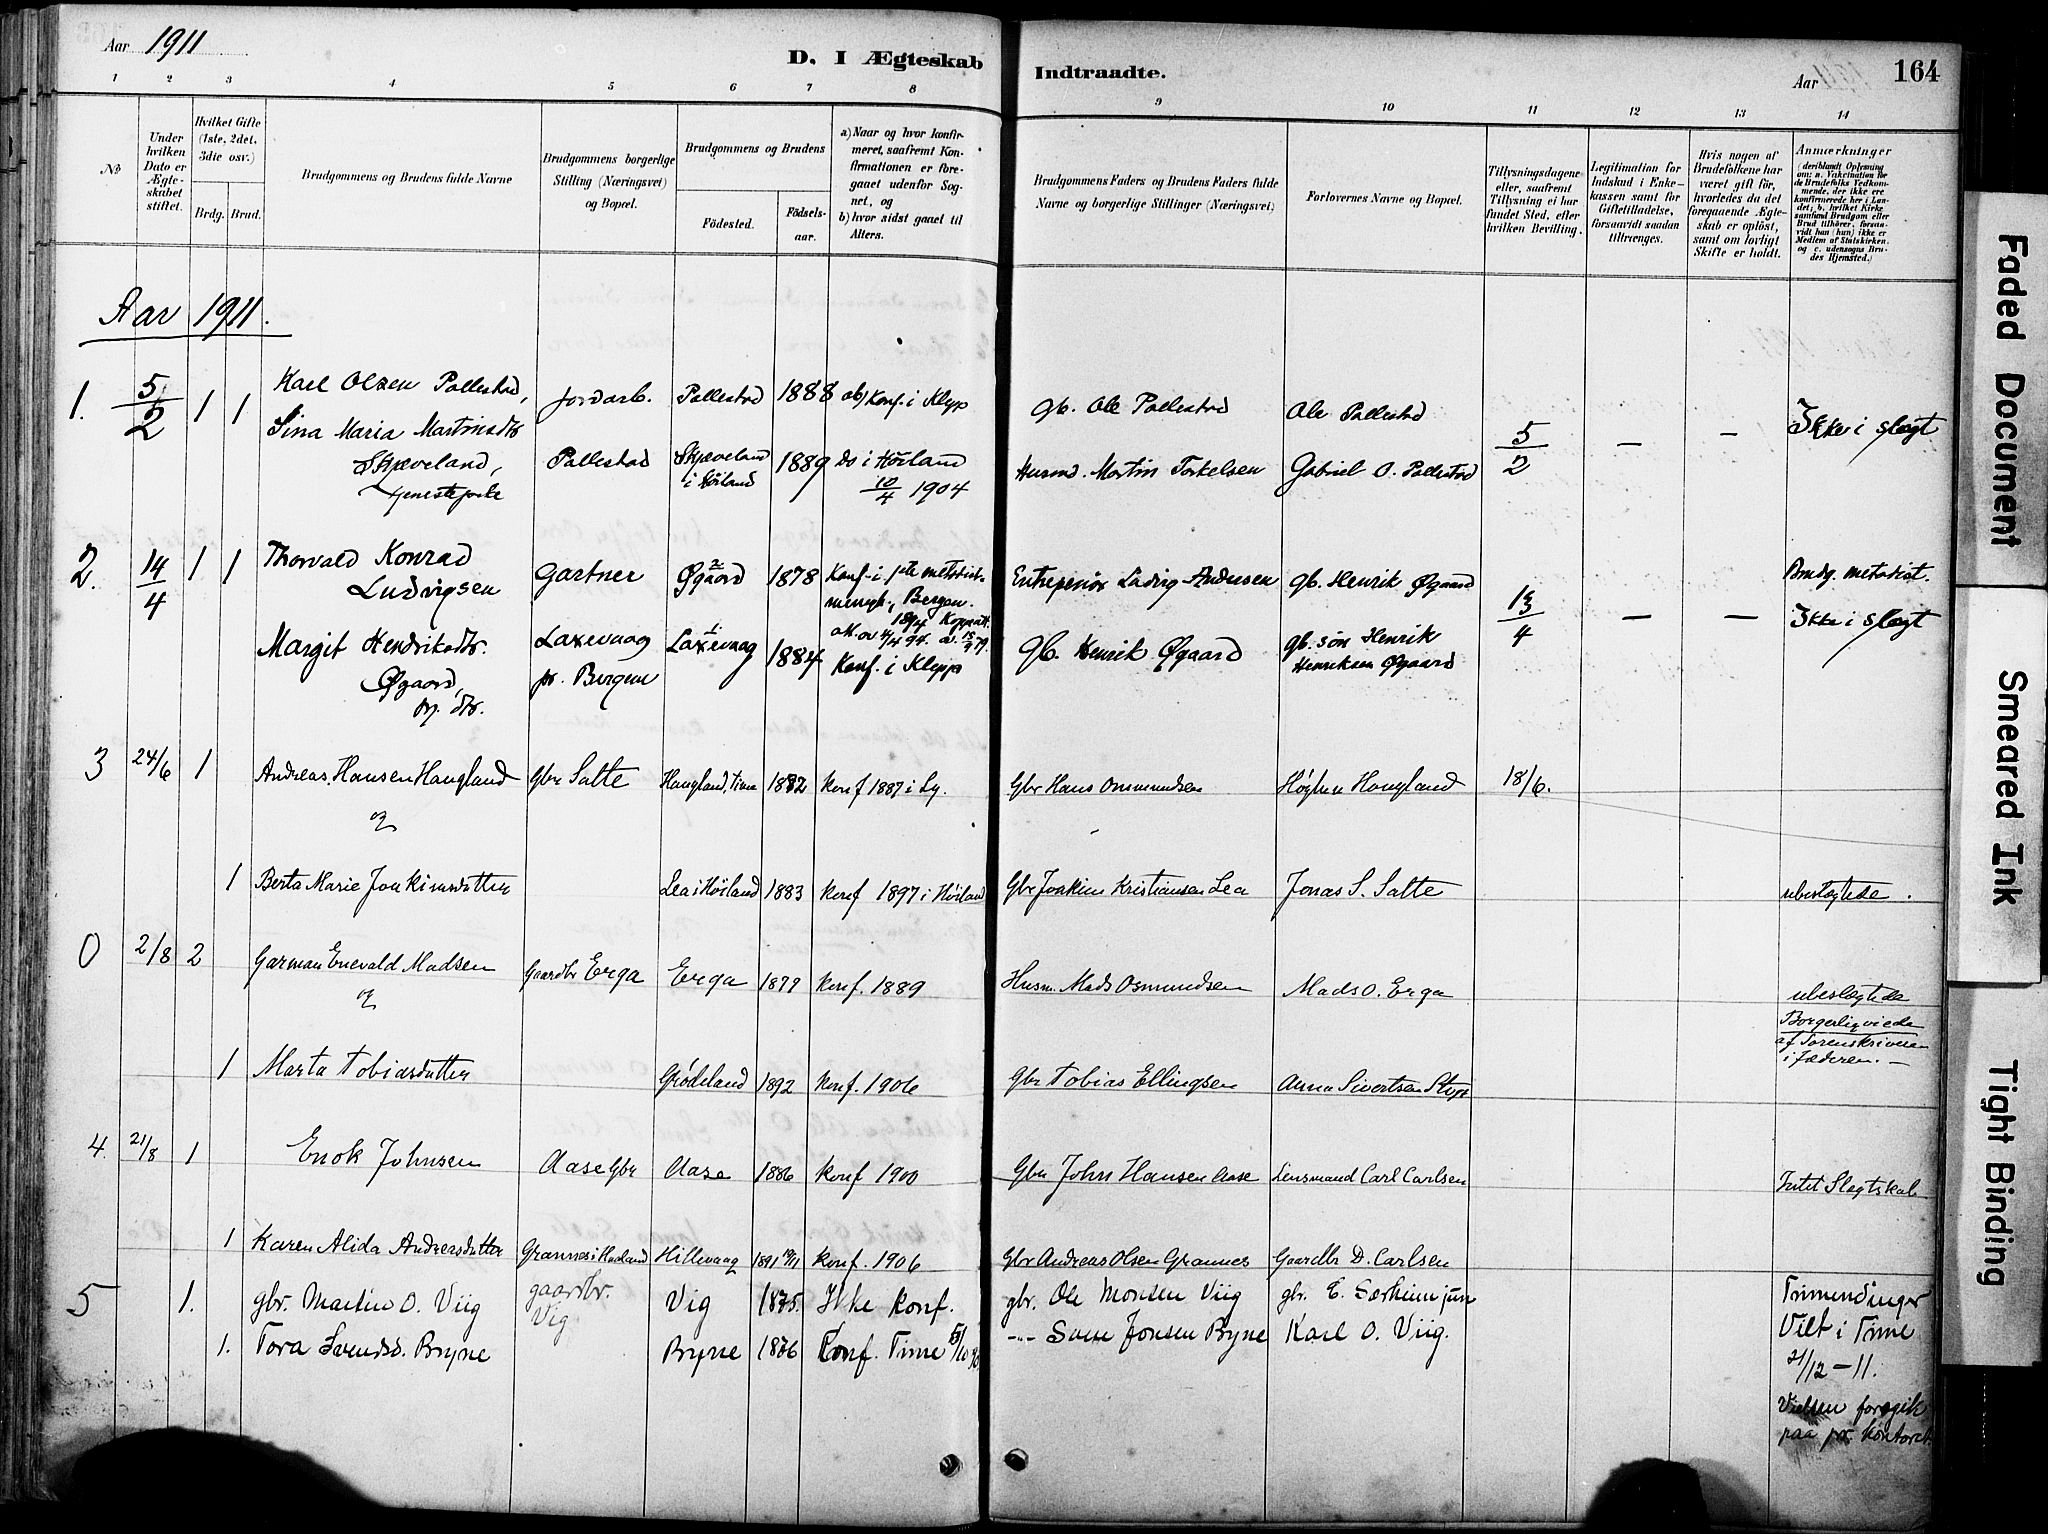 Aar 1911
D. I Ægteskab
Indtraadte.
Aar
164
1 2 3 4 5 6 7 8 9 10 11 12 13 14
No
Under hvilken Dato er Ægteskabet stiftet.
Hvilket Gifte (1ste, 2det, 3die osv.)
Brdg. Brud.
Brudgommens og Brudens fulde Navne
Brudgommens borgerlige Stilling (Næringsvei) og Bopæl.
Brudgommens og Brudens
Födested.
Födselsaar.
a) Naar og hvor konfirmeret, saafremt Konfirmationen er foregaaet udenfor Sognet, og
b) hvor sidst gaaet til Alters.
Brudgommens Faders og Brudens Faders fulde Navne og borgerlige Stillinger (Næringsvei)
Forlovernes Navne og Bopæl.
Tillysningsdagene eller, saafremt Tillysning ei har fundet Sted, efter hvilken Bevilling.
Legitimation for Indskud i Enkekassen samt for Giftetilladelse, forsaavidt saadan tiltrænges.
Hvis nogen af Brudefolkene har været gift för, hvorledes da det foregaaende Ægteskab er oplöst, samt om lovligt Skifte er holdt.
Anmærkninger
(deriblandt Oplysning om: a. Vakcination for de Brudefolks Vedkommende, der ikke ere konfirmerede her i Landet; b. hvilket Kirkesamfund Brudgom eller Brud tilhörer, forsaavidt han (hun) ikke er Medlem af Statskirken, og c. udensogns Brudes Hjemsted.)
Aar 1911.
1. 5/2 1 1 Karl Olsen Pollestad, Jordarb. Pollestad 1888 a b) Konf. i Klepp gb. Ole Pollestad Ole Pollestad 5/2 — — Ikke i slegt
Sina Maria Martinsdtr
Skjæveland, Pollestad Skjæveland i Høiland 1889 Do i Høiland 10/4 1904 Husmd. Martin Torkelsen Gabriel O. Pollestad
tjenestepike
2. 14/4 1 1 Thorvald Konrad Ludvigsen Gartner Øgaard 1878 Konf. i 1ste metodistmengh., Bergen. Entreprenør Ludvig Andersen gb. Henrik Øgaard 13/4 — — Brudg. metodist.
Ikke i slegt
Margit Hendriksdtr. Øgaard, Laxevaag pr. Bergen Laxevaag 1884 Konf. i Klepp gb. Henrik Øgaard gb. søn Henrik Henriksen Øgaard
3 24/6 1 Andreas Hansen Haugland Gbr Salte Haugland, Time 1872 Konf 1887 i Ly. Gbr Hans Ommundsen Haugland 18/6.
og
1 Berta Marie Joakimsdatter Lea i Høiland 1883 Konf 1897 i Høiland Gbr Joakim Kristiansen Lea Jonas S. Salte ubeslegtede.
0 2/8 2 Garman Enevald Madsen Gaardbr Erga Erga Konf. 1889 Husm. Mads Osmundsen Mads O. Erga ubeslegtede
og
Borgerlig viede
af Sorenskriveren
i Jæderen.—
1 Marta Tobiasdatter Grødeland 1892 Konf. 1906 Gbr Tobias Ellingsen Anna Sivertsen
4. 21/8 1 Enok Johnsen Aase Gbr Aase 1886 Konf 1900 Gbr John Hansen Aase Lensmand Carl Carlsen Intet Slegtskab
1 Karen Alida Andreasdatter Grannes i Haaland Hillevaag 1891 Konf. 1906 Gbr Andreas Olsen Grannes Gaardbr D. Carlsen
5 1. gbr. Martin O. Viig gaardbr. Vig Vig 1875. Ikke konf. gbr. Ole Monsen Viig gbr. E. Serheim jun
1. Tora Svendsd. Bryne Bryne 1876 Konf. Time -"- Sven Jonsen Bryne Karl O. Viig.
Trimendinger
Viet i Time
21/12 – 11.
Vielsen foregik
paa pr. kontoret
Faded Document
Smeared Ink
Tight Binding